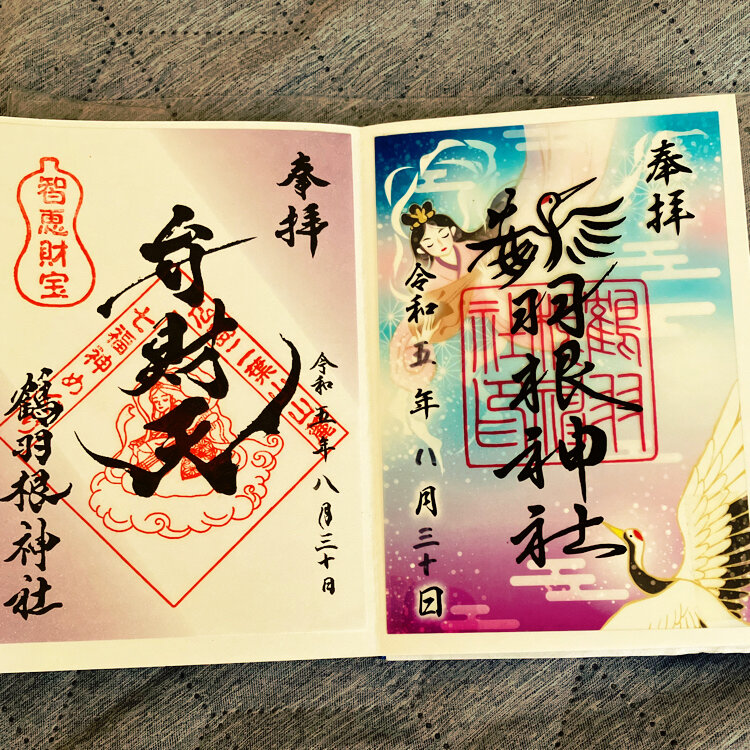 奉拝
鶴羽根神社
鶴羽根神社印
令和五年八月三十日
奉拝
令和五年八月三十日
弁財天
二葉
七福神め
智恵財宝
鶴羽根神社